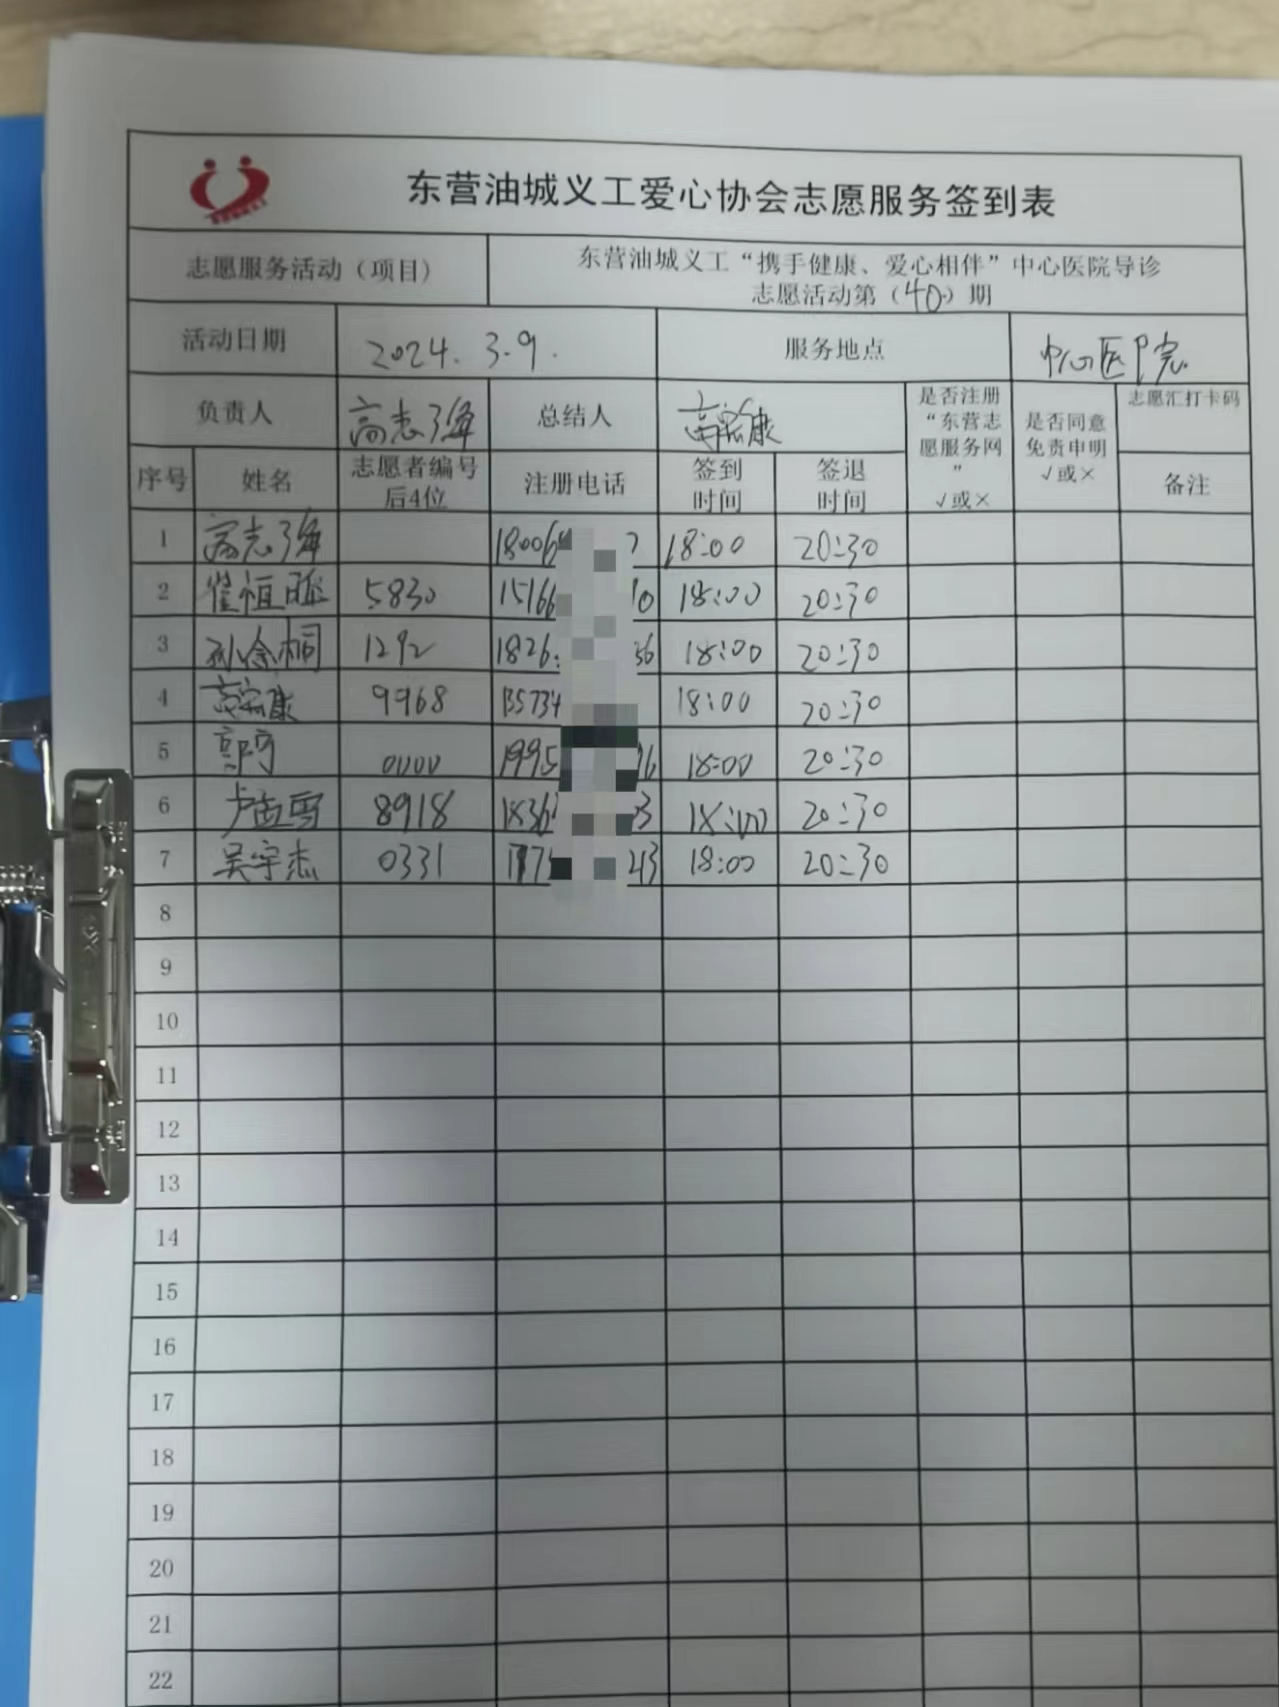 东营油城义工爱心协会志愿服务签到表
志愿服务活动（项目） 东营油城义工“携手健康、爱心相伴”中心医院导诊
志愿活动第（40）期
活动日期 2024.3.9. 服务地点 中心医院
负责人 高志海 总结人 康 是否注册“东营志愿服务网” √或× 是否同意免责申明 √或× 志愿汇打卡码
序号 姓名 志愿者编号后4位 注册电话 签到时间 签退时间 备注
1 高志海 18006 7 18:00 20:30
2 崔恒 5830 15166 10 18:00 20:30
3 孙徐桐 1292 1826 56 18:00 20:30
4 康 9968 135734 18:00 20:30
5 0000 1995 96 18:00 20:30
6 卢孟雪 8918 1836 3 18:00 20:30
7 吴宇杰 0331 177 43 18:00 20:30
8
9
10
11
12
13
14
15
16
17
18
19
20
21
22